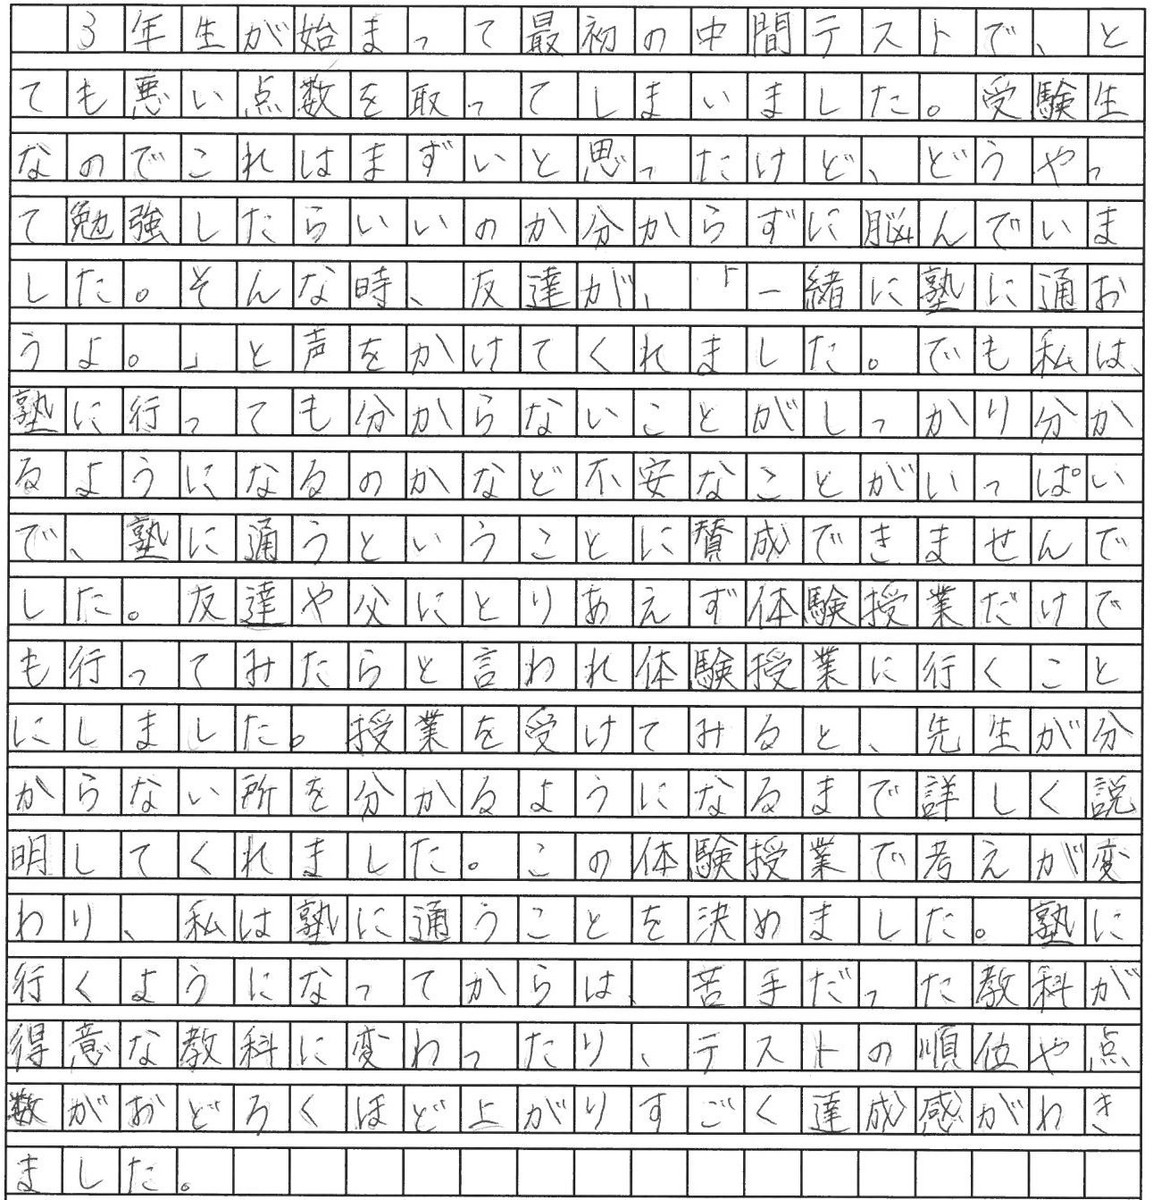 3年生が始まって最初の中間テストで、と
ても悪い点数を取ってしまいました。受験生
なのでこれはまずいと思ったけど、どうやっ
て勉強したらいいのか分からずに脳んでいま
した。そんな時、友達が、「一緒に塾に通お
うよ。」と声をかけてくれました。でも私は、
塾に行っても分からないことがしっかり分か
るようになるのかなど不安なことがいっぱい
で、塾に通うということに賛成できませんで
した。友達や父にとりあえず体験授業だけで
も行ってみたらと言われ体験授業に行くこと
にしました。授業を受けてみると、先生が分
からない所を分かるようになるまで詳しく説
明してくれました。この体験授業で考えが変
わり、私は塾に通うことを決めました。塾に
行くようになってからは、苦手だった教科が
得意な教科に変わったり、テストの順位や点
数がおどろくほど上がりすごく達成感がわき
ました。